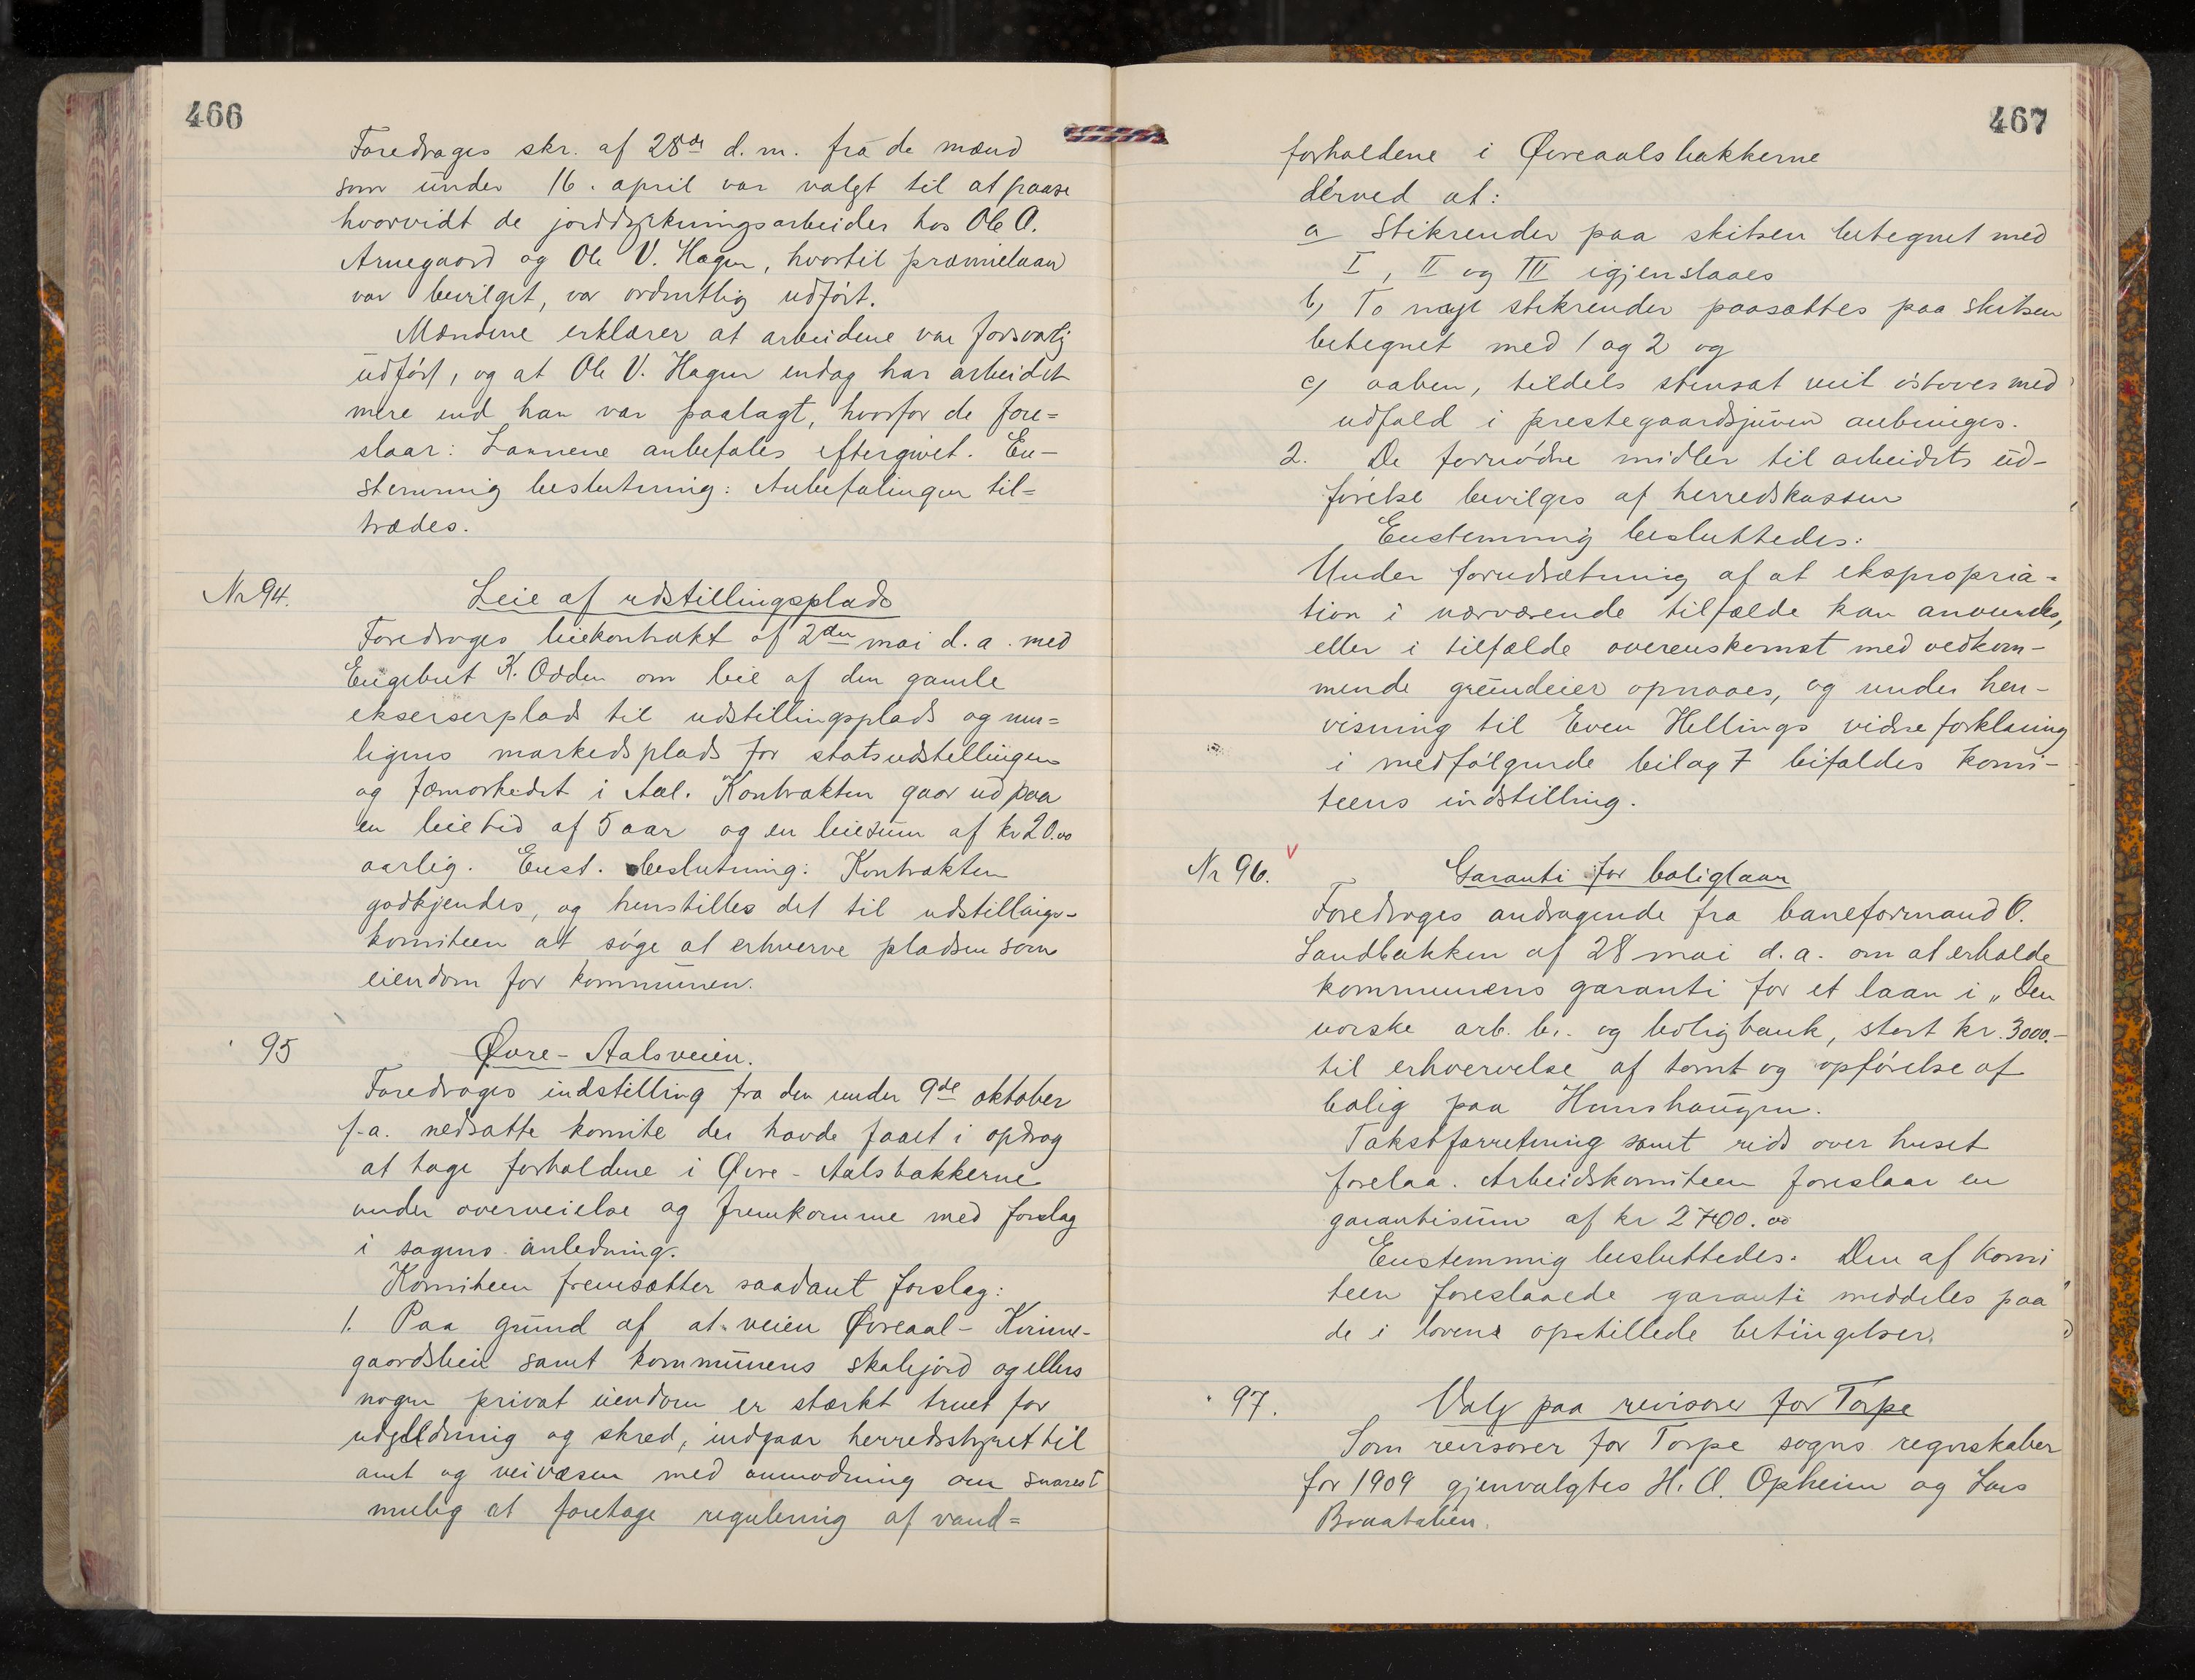 466
Foredrages skr. af 28de d. m. fra de mænd
som under 16. april var valgt til at paase
hvorvidt de jorddyrkningsarbeider hos Ole O.
Arnegaard og Ole V. Hagen, hvortil præmielaan
var bevilget, var ordentlig udført.
Mændene erklærer at arbeidene var forsvarlig
udført, og at Ole V. Hagen endog har arbeidet
mere end han var paalagt, hvorfor de fore=
slaar: Laanene anbefales eftergivet. En-
stemmig beslutning: Anbefalingen til=
trædes.
Nr 94.
Leie af udstillingsplads
Foredrages leiekontrakt af 2den mai d. a. med
Engebret K. Odden om leie af den gamle
ekserserplads til udstillingsplads og mu=
ligens markedsplads for statsudstillingen
og fæmarkedet i Aal. Kontrakten gaar ud paa
en leietid af 5 aar og en leiesum af kr 20.00
aarlig. Enst. beslutning: Kontrakten
godkjendes, og henstilles det til udstillings-
komiteen at søge at erhverve pladsen som
eiendom for kommunen.
95
Øvre-Aalsveien.
Foredrages indstilling fra den under 9de oktober
f. a. nedsatte komite der havde faaet i opdrag
at tage forholdene i Øvre-Aalsbakkerne
under overveielse og fremkomme med forslag
i sagens anledning.
Komiteen fremsætter saadant forslag:
1. Paa grund af at veien Øvreaal-
samt kommunens skolejord og ellers
nogen privat eiendom er stærkt truet for
udgildning og skred, indgaar herredsstyret til
amt og veivæsen med anmodning om snarest
mulig at foretage regulering af vand=
467
forholdene i Øvreaalsbakkerne
derved at:
a Stikrender paa skitsen betegnet med
I, II og III igjenslaaes
b) To nye stikrender paasættes paa skitsen
betegnet med 1 og 2 og
c) aaben, tildels stensat veit østover med
udfald i prestegaardsjuven anbringes.
2. De fornødne midler til arbeidets ud-
førelse bevilges af herredskassen
Enstemmig besluttedes:
Under forudsætning af at ekspropria-
tion i nærværende tilfælde kan anvendes,
eller i tilfælde overenskomst med vedkom-
mende grundeier opnaaes, og under hen-
visning til Even Hellings vidneforklaring
i medfølgende bilag 7 bifaldes komi-
teens indstilling.
Nr 96. v
Garanti for boliglaan
Foredrages andragende fra baneformand O.
Sandbakken af 28 mai d. a. om at erholde
kommunens garanti for et laan i „Den
norske arb. br. og boligbank, stort kr. 3000.-
til erhvervelse af tomt og opførelse af
bolig paa Hunshaugen.
Takstforretning samt rids over huset
forelaa. Arbeidskomiteen foreslaar en
garantisum af kr 2700.00
Enstemmig besluttedes. Den af komi
teen foreslaaede garanti meddeles paa
de i lovens opstillede betingelser.
97.
Valg paa revisorer for Torpe
Som revisorer for Torpe sogns regnskaber
for 1909 gjenvalgtes H. O. Opheim og Lars